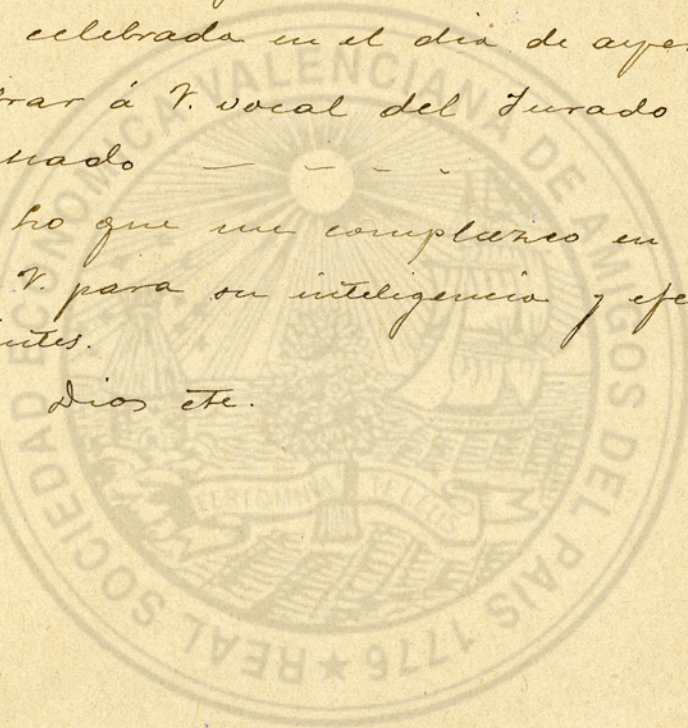 celebrada en el dia de ayer
rar á V. vocal del Jurado
nado — — - -
Lo que me complazco en
V. para su inteligencia y efe
intes.
Dios etc.
REAL SOCIEDAD ECONOMICA VALENCIANA DE AMIGOS DEL PAIS 1776 ★
FERT OMNIA TELLUS